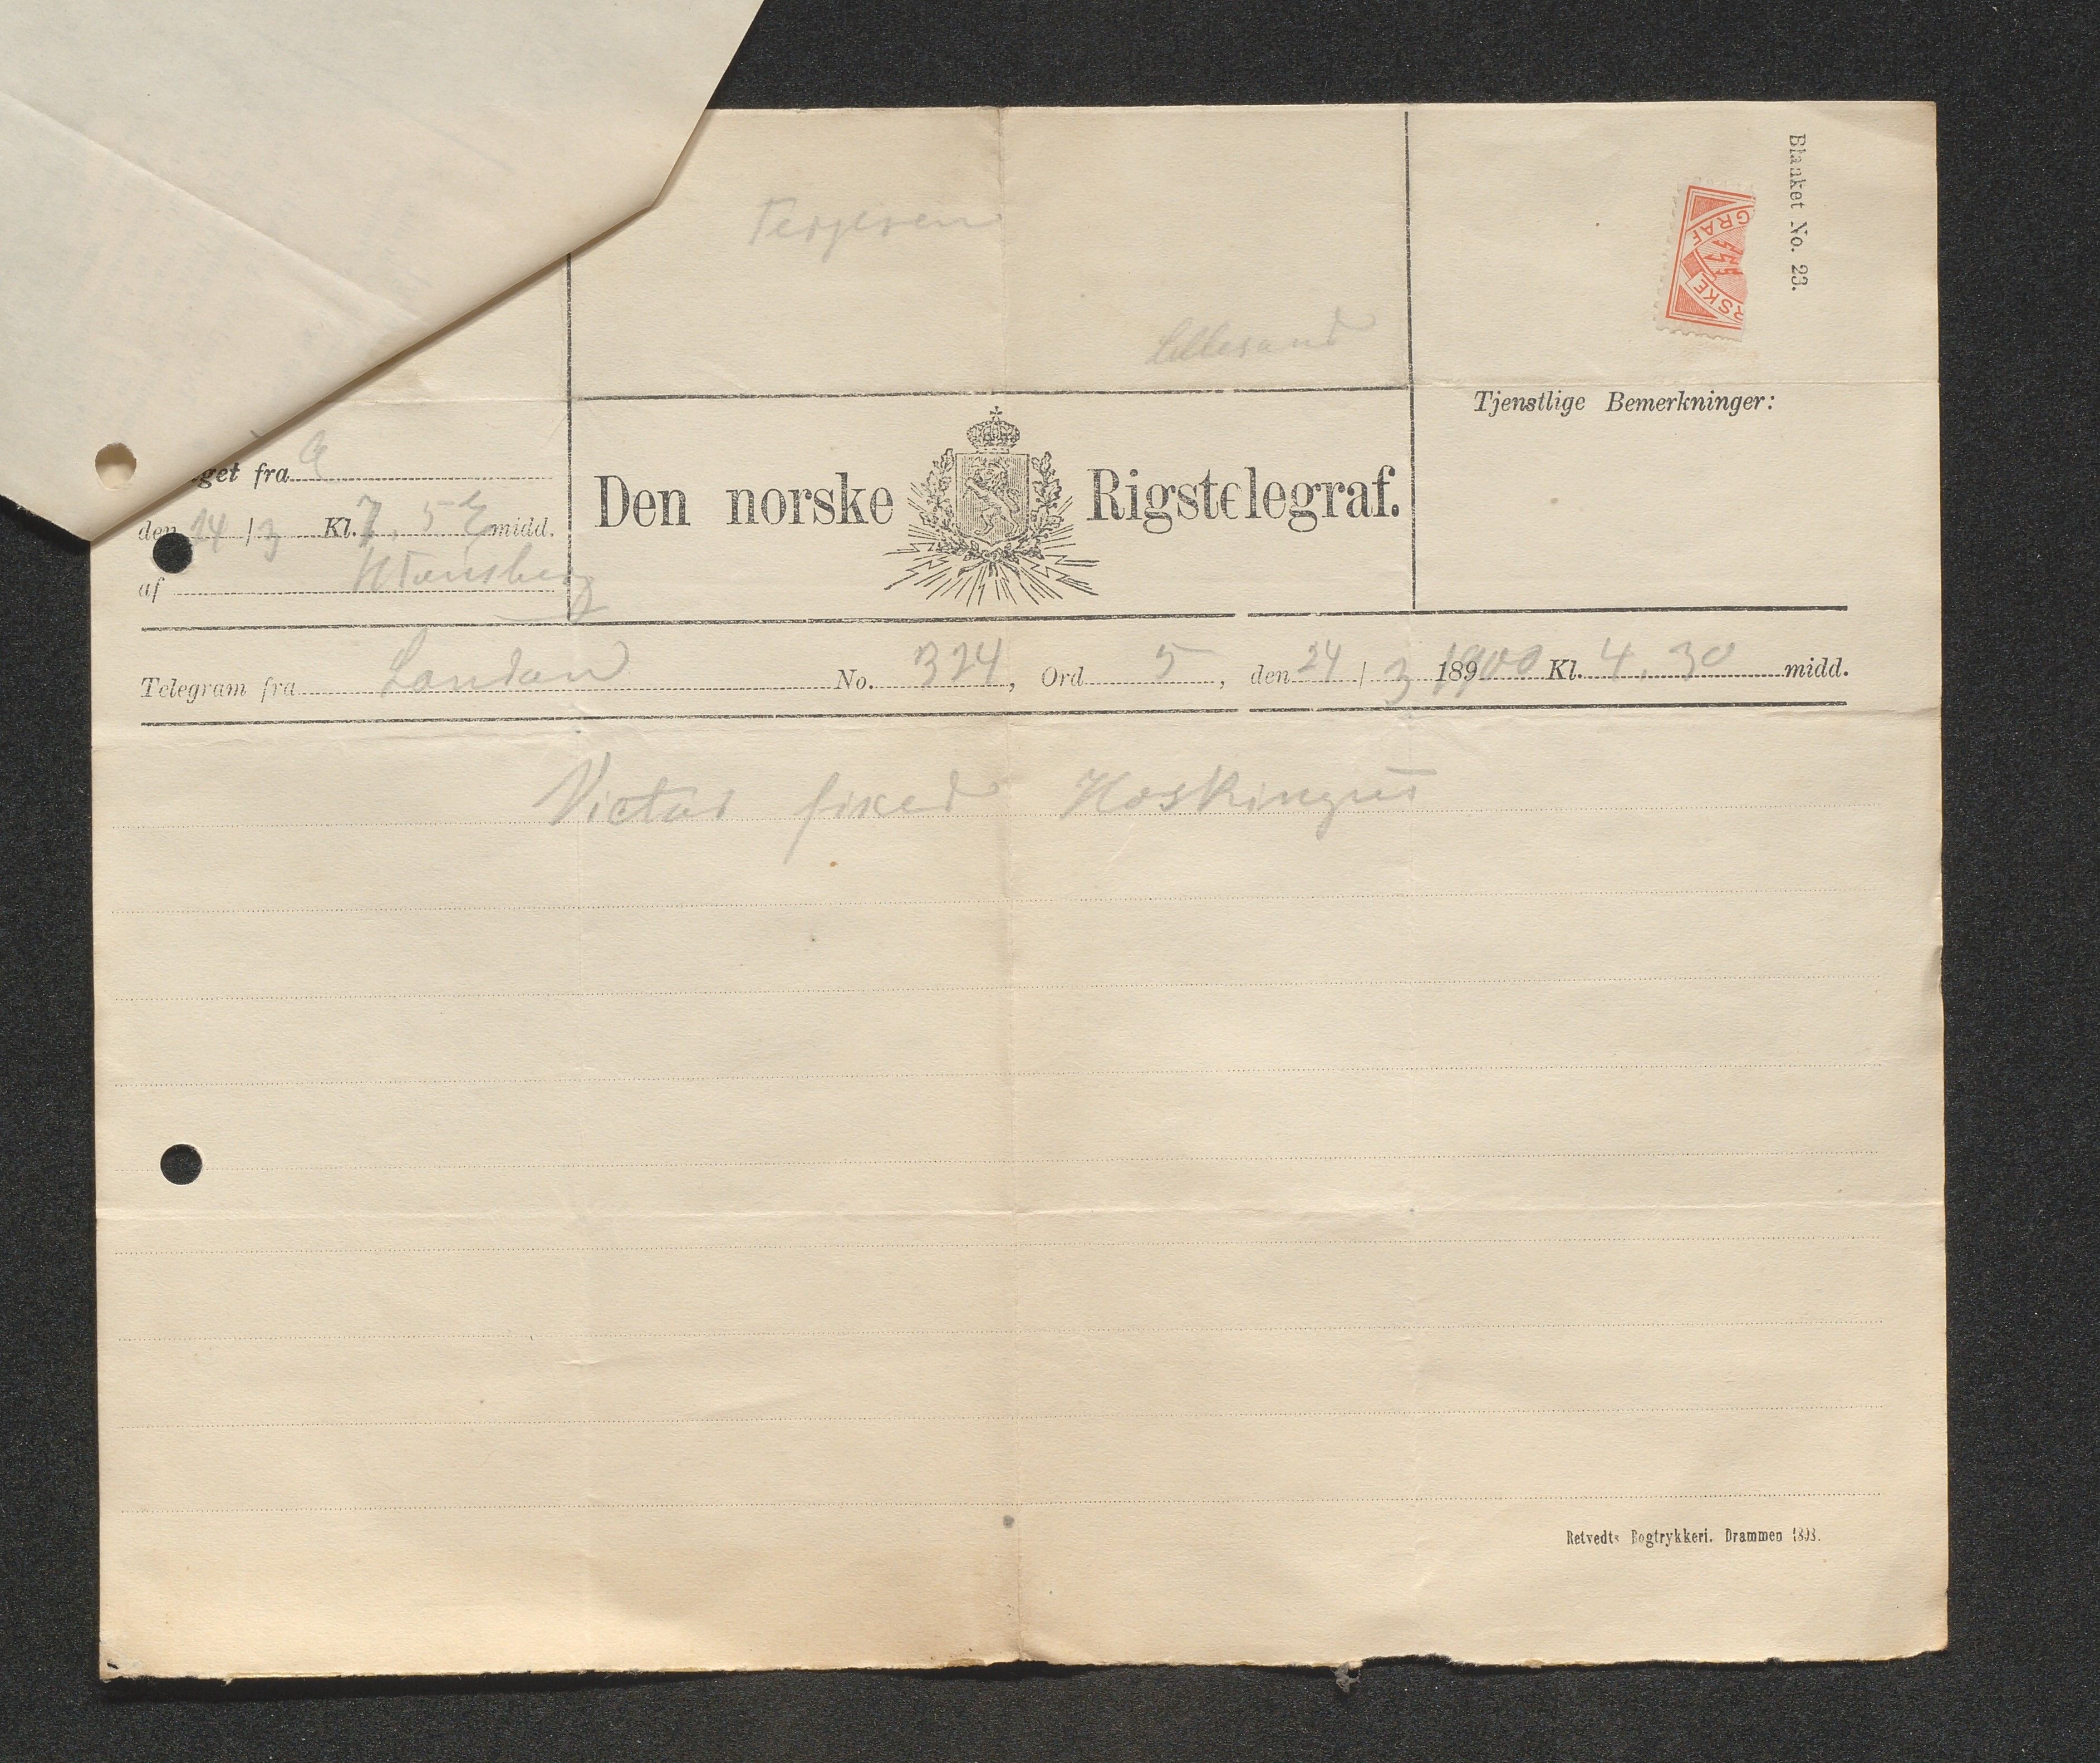 Blanket No. 23.
GRAF
RSKE
Terjesen
Lillesand
Tjenstlige Bemerkninger:
get fra
den 24 / 3 Kl. 7, 5 midd.
af HTønsberg
Den norske Rigstelegraf.
Telegram fra London No. 324, Ord 5, den 24 / 3 1891900 Kl. 4.30 midd.
Victor fixed
Retvedts Bogtrykkeri. Drammen 1898.